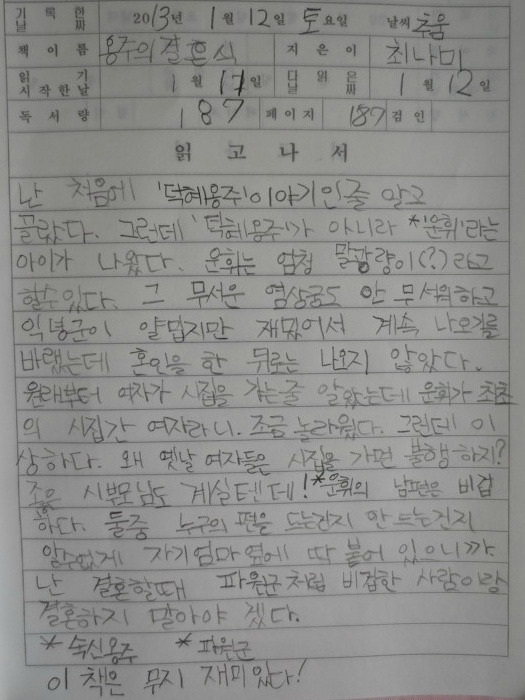 기록한 날짜 2013년 1월 12일 토요일 날씨 추움
책이름 옹주의 결혼식 지은이 최나미
읽기 시작한날 1월 11일 다읽은 날짜 1월 12일
독서량 187 페이지 187 검인
읽고나서
난 처음에 '덕혜옹주'이야기인줄 알고
골랐다. 그런데 '덕혜옹주'가 아니라 *'운휘'라는
아이가 나왔다. 운휘는 엄청 말괄량이(?)라고
할수있다. 그 무서운 염상궁도 안 무서워하고
익녕군이 얄밉지만 재밌어서 계속 나오기를
바랬는데 혼인을 한 뒤로는 나오지 않았다.
원래부터 여자가 시집을 가는줄 알았는데 운휘가 초초
의 시집간 여자라니. 조금 놀라웠다. 그런데 이
상하다. 왜 옛날 여자들은 시집을 가면 불행하지?
좋은 시부모님도 계실텐데! *운휘의 남편은 비겁
하다. 둘중 누구의 편을 드는건지 안 드는건지
알수없게 자기엄마 옆에 딱 붙어 있으니까.
난 결혼할때 파원군처럼 비겁한 사람이랑
결혼하지 말아야 겠다.
* 숙신옹주 * 파원군
이 책은 무지 재미있다!